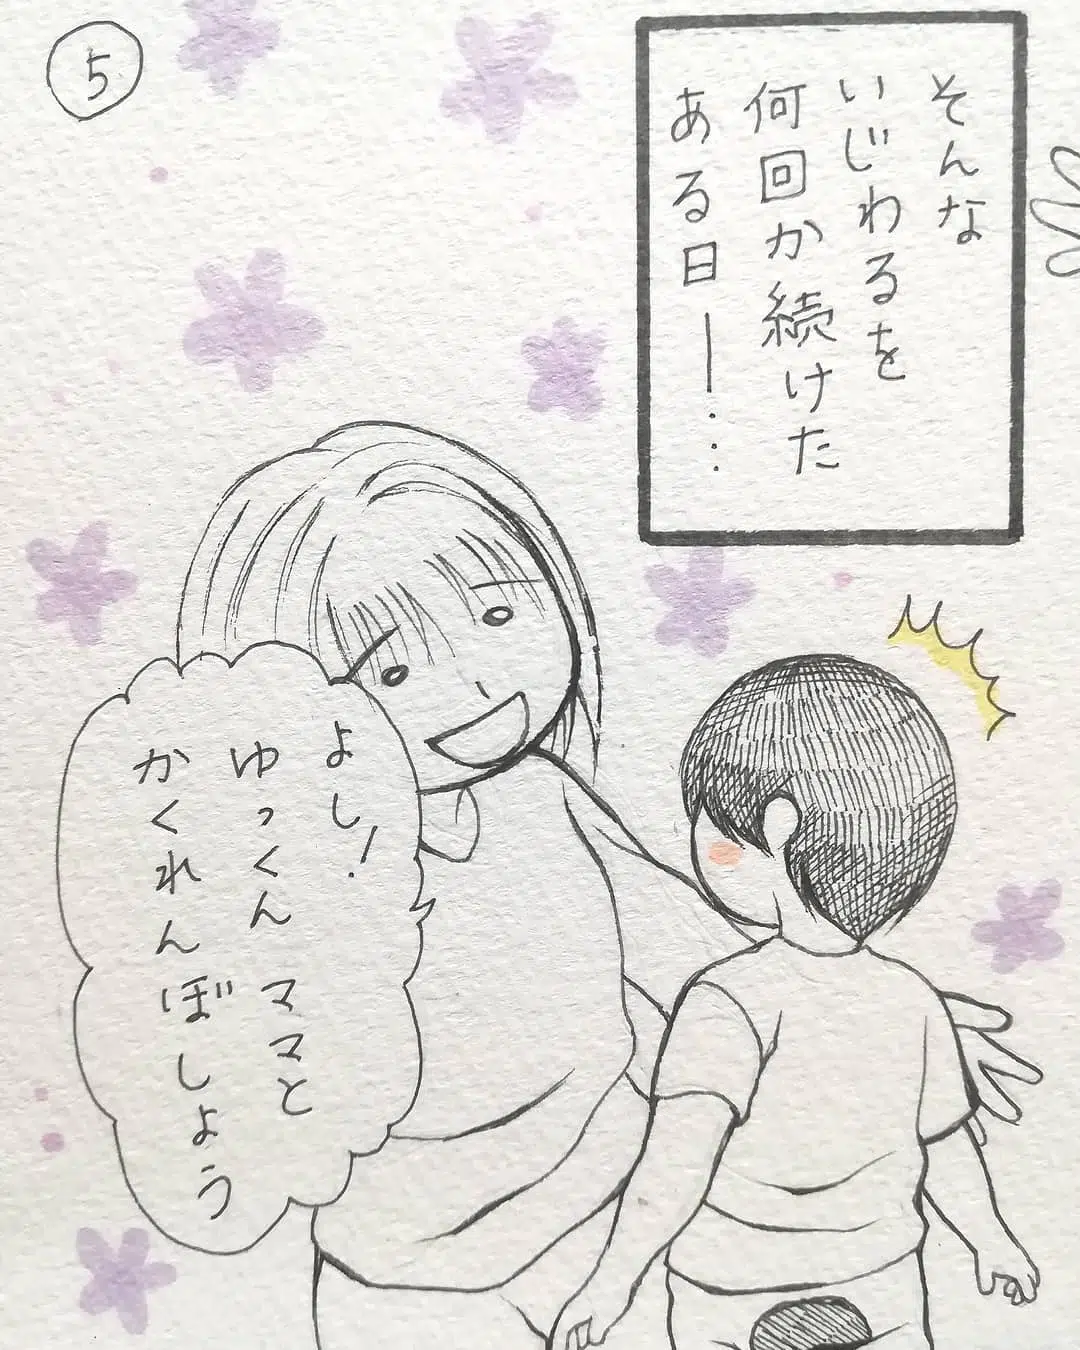 5
そんな
いじわるを
何回か続けた
ある日ー‥‥
よし！
ゆっくん ママと
かくれんぼしよう